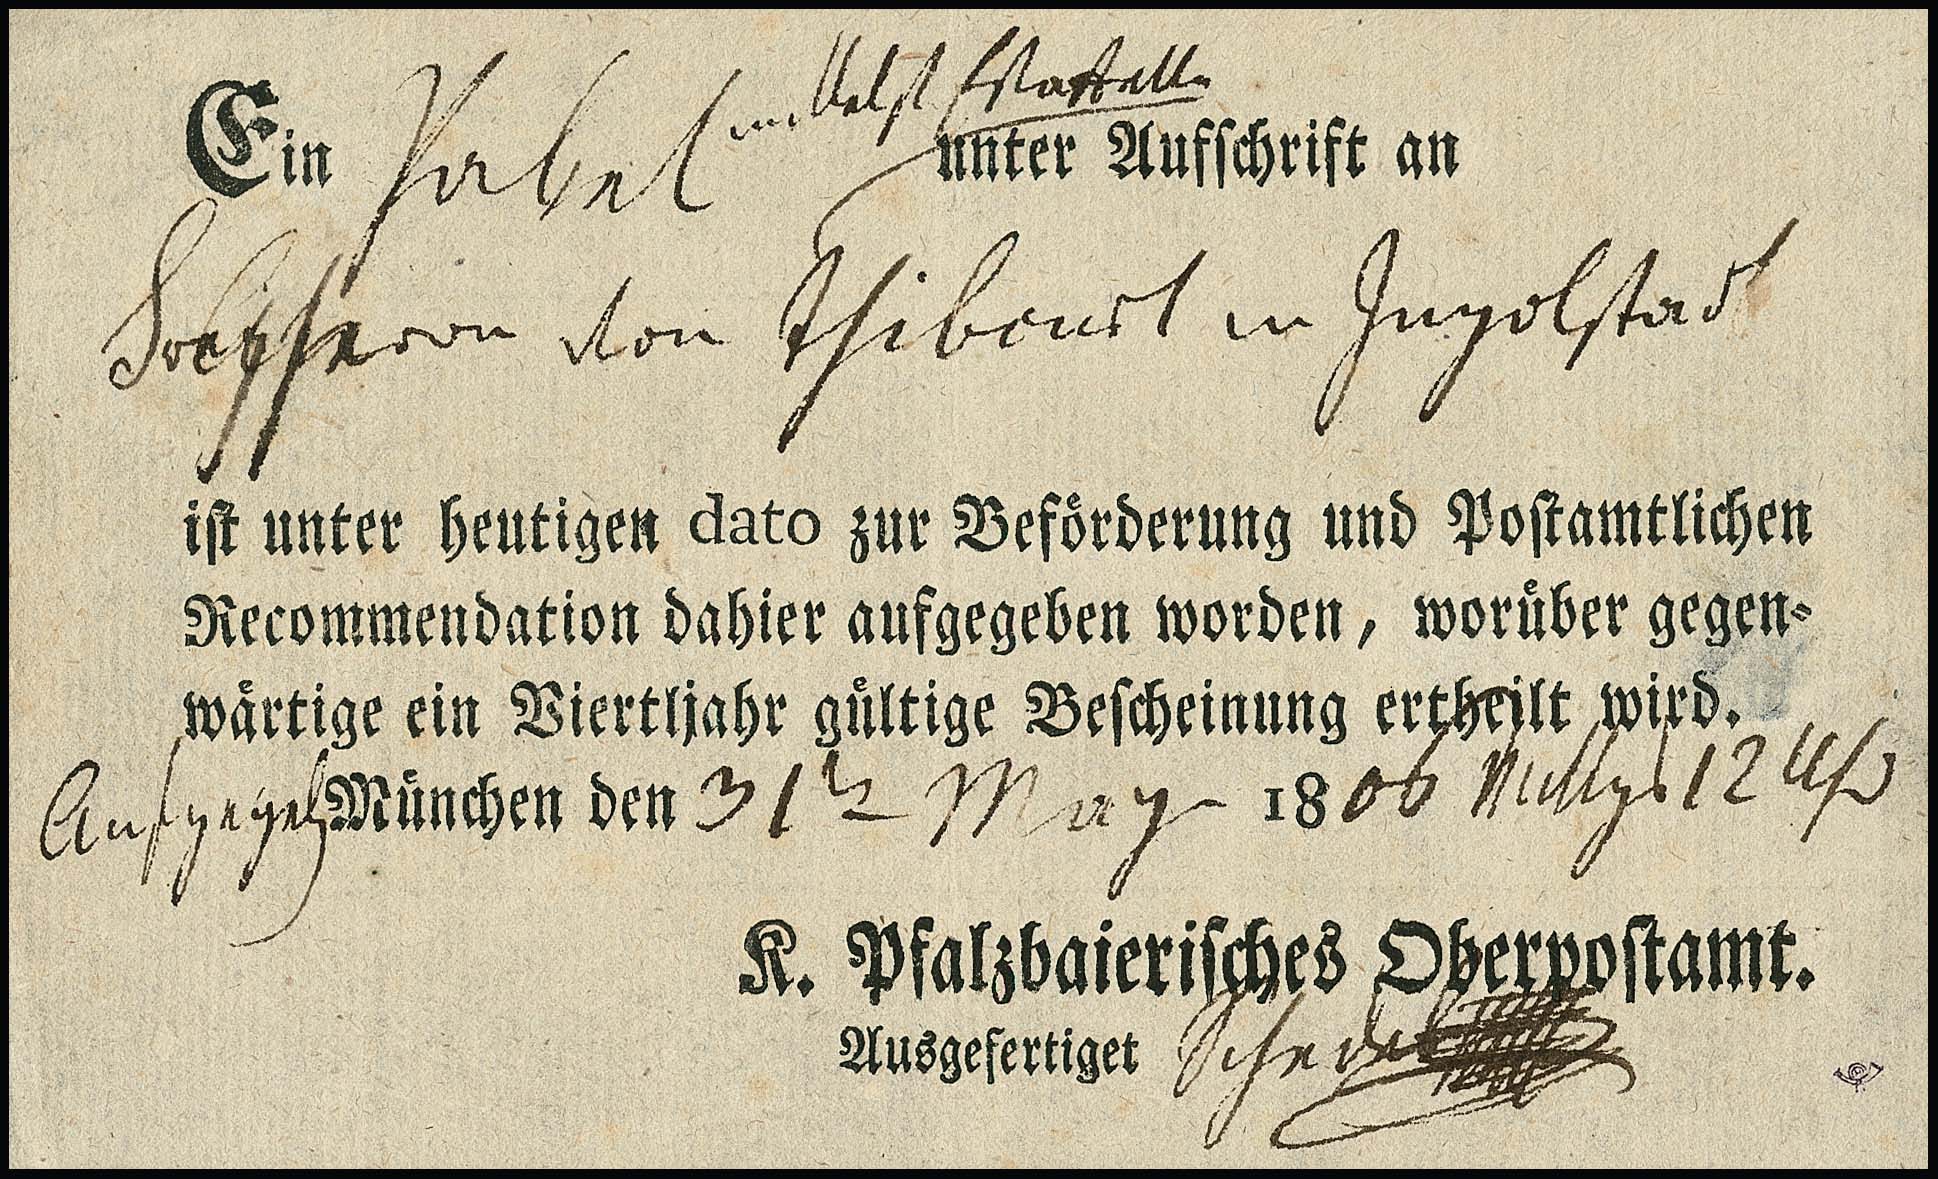 mittelst Estaffette
Ein Pabel unter Aufschrift an
von Thiboust in Ingolstadt
ist unter heutigen dato zur Beförderung und Postamtlichen
Recommendation dahier aufgegeben worden, worüber gegen-
wärtige ein Viertljahr gültige Bescheinung ertheilt wird.
Aufgegeb München den 31t May 1806 Mittags 12 Uhr
K. Pfalzbaierisches Oberpostamt.
Ausgefertiget Schedel